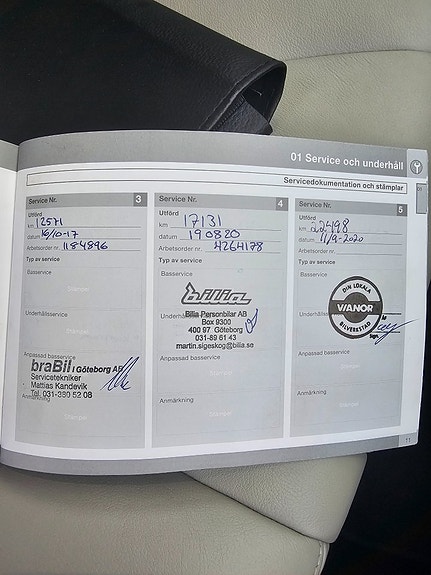 01 Service och underhåll
Servicedokumentation och stämplar
Service Nr. 3
Utförd
km 12571
datum 16/10-17
Arbetsorder nr. 1184896
Typ av service
Basservice
Stämpel
Underhållsservice
Stämpel
braBil i Göteborg AB
Servicetekniker
Mattias Kandevik
Tel. 031-380 52 08
Anpassad basservice
Anmärkning
Stämpel
Service Nr. 4
Utförd
km 17131
datum 190820
Arbetsorder nr. 4264178
Typ av service
Basservice
bilia
Bilia Personbilar AB
Box 9300
400 97 Göteborg
031-89 61 43
martin.sigeskog@bilia.se
Anpassad basservice
Stämpel
Anmärkning
Service Nr. 5
Utförd
km 22498
datum 11/9-2020
Arbetsorder nr.
Typ av service
Basservice
DIN LOKALA
VIANOR
BILVERKSTAD
Underhållsservice
sign.
Anpassad basservice
Stämpel
Anmärkning
11